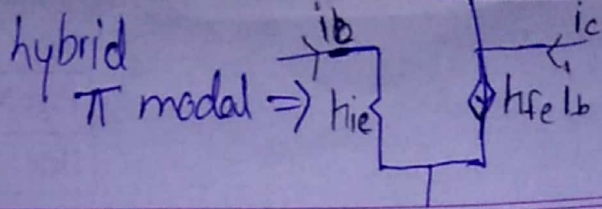 hybrid
π modal ⇒
ib
hie
ic
hfeib